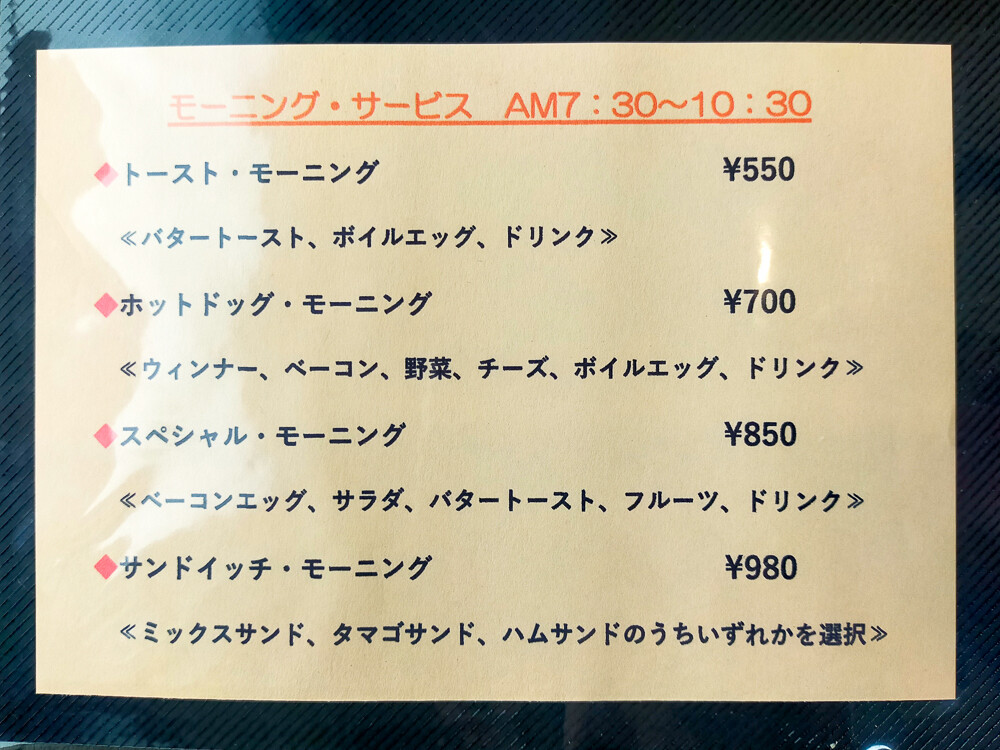 モーニング・サービス　AM7：30～10：30
◆トースト・モーニング　¥550
≪バタートースト、ボイルエッグ、ドリンク≫
◆ホットドッグ・モーニング　¥700
≪ウィンナー、ベーコン、野菜、チーズ、ボイルエッグ、ドリンク≫
◆スペシャル・モーニング　¥850
≪ベーコンエッグ、サラダ、バタートースト、フルーツ、ドリンク≫
◆サンドイッチ・モーニング　¥980
≪ミックスサンド、タマゴサンド、ハムサンドのうちいずれかを選択≫